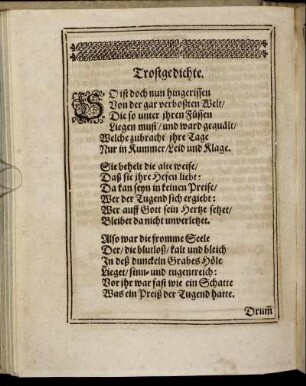 Trostgedichte.
SO ist doch nun hingerissen
Von der gar verboßten Welt/
Die so unter jhren Füssen
Liegen must/ und ward gequält/
Welche zubracht jhre Tage
Nur in Kummer/ Leid und Klage.
Sie behelt die alte weise/
Daß sie jhre Hefen liebt:
Da kan seyn in keinen Preise/
Wer der Tugend sich ergiebt:
Wer auff Gott sein Hertze setzet/
Bleibet da nicht unverletzet.
Also war die fromme Seele
Der/ die blutloß/ kalt und bleich
In deß dunckeln Grabes Höle
Lieget/ sinn- und tugentreich:
Vor jhr war fast wie ein Schatte
Was ein Preiß der Tugend hatte.
Drum̃